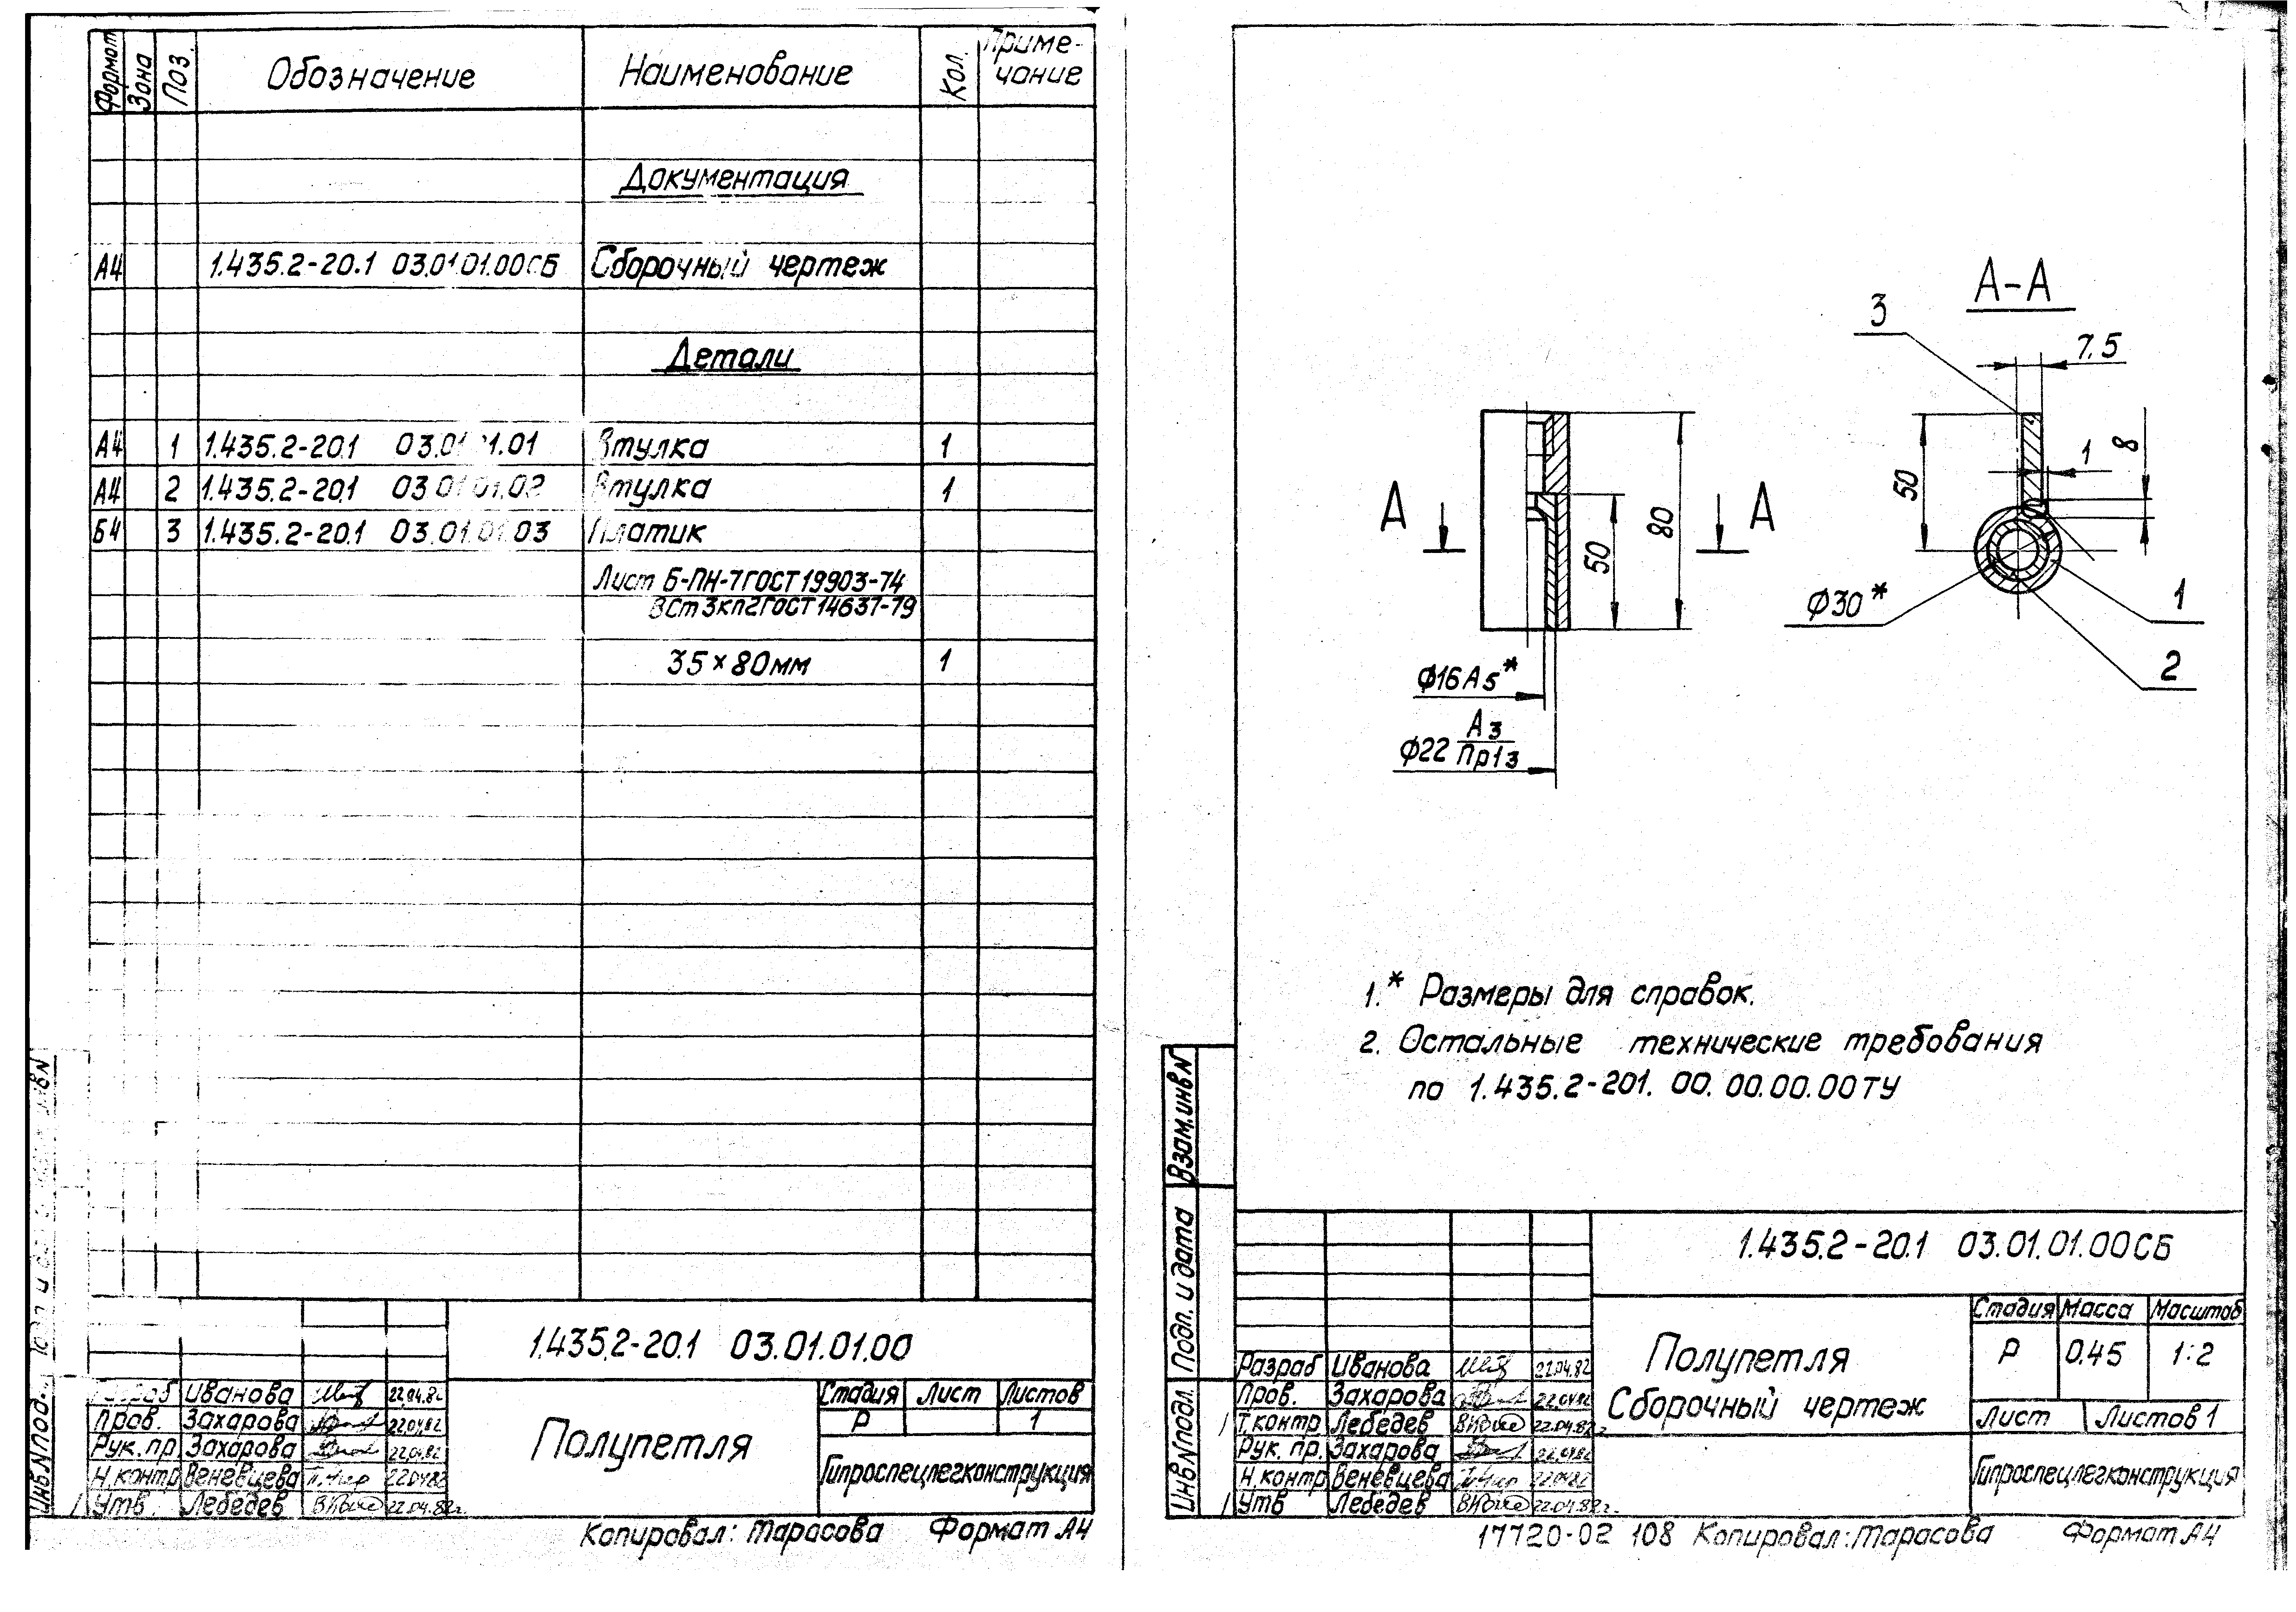 Формат Зона Поз. Обозначение Наименование Кол. Приме-
чание
Документация
А4 1.435.2-20.1 03.01.01.00СБ Сборочный чертеж
Детали
А4 1 1.435.2-20.1 03.01.01.01 Втулка 1
А4 2 1.435.2-20.1 03.01.01.02 Втулка 1
Б4 3 1.435.2-20.1 03.01.01.03 Платик
Лист Б-ПН-7 ГОСТ 19903-74
ВСт3кп2 ГОСТ 14637-79
35×80мм 1
1.435.2-20.1 03.01.01.00
Разраб Иванова 22.04.82
Пров. Захарова 22.04.82
Рук. пр. Захарова 22.04.82
Н.контр Веневцева 22.04.82
Утв. Лебедев 22.04.82г.
Полупетля
Стадия Лист Листов
Р 1
Гипроспецлегконструкция
Инв.N подл.
Копировал: Тарасова Формат А4
А-А
3
7,5
8
1
50
А А
50
80
Ф30*
1
2
Ф16А5*
Ф22 А3
Пр13
1.* Размеры для справок.
2. Остальные технические требования
по 1.435.2-20.1. 00.00.00.00ТУ
Взам.инвN
Подп. и дата
Инв.Nподл.
1.435.2-20.1 03.01.01.00СБ
Разраб Иванова 22.04.82
Пров. Захарова 22.04.82
Т.контр Лебедев 22.04.82г.
Рук. пр. Захарова 22.04.82
Н.контр Веневцева 22.04.82
Утв Лебедев 22.04.82г.
Полупетля
Сборочный чертеж
Стадия Масса Масштаб
Р 0.45 1:2
Лист Листов 1
Гипроспецлегконструкция
17720-02 108 Копировал: Тарасова Формат А4